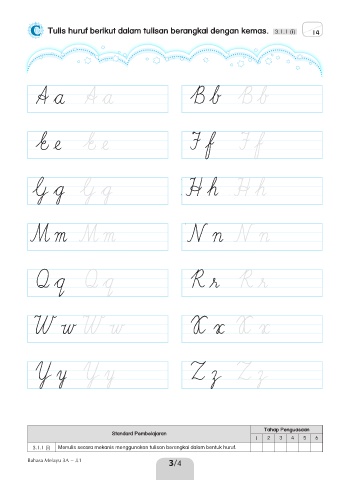 C Tulis huruf berikut dalam tulisan berangkai dengan kemas. 3.1.1 (i) 14
A a A a B b B b
E e E e F f F f
G g G g H h H h
M m M m N n N n
Q q Q q R r R r
W w W w X x X x
Y y Y y Z z Z z
Standard Pembelajaran Tahap Penguasaan
1 2 3 4 5 6
3.1.1 (i) Menulis secara mekanis menggunakan tulisan berangkai dalam bentuk huruf.
Bahasa Melayu 3A – 3.1
3/4